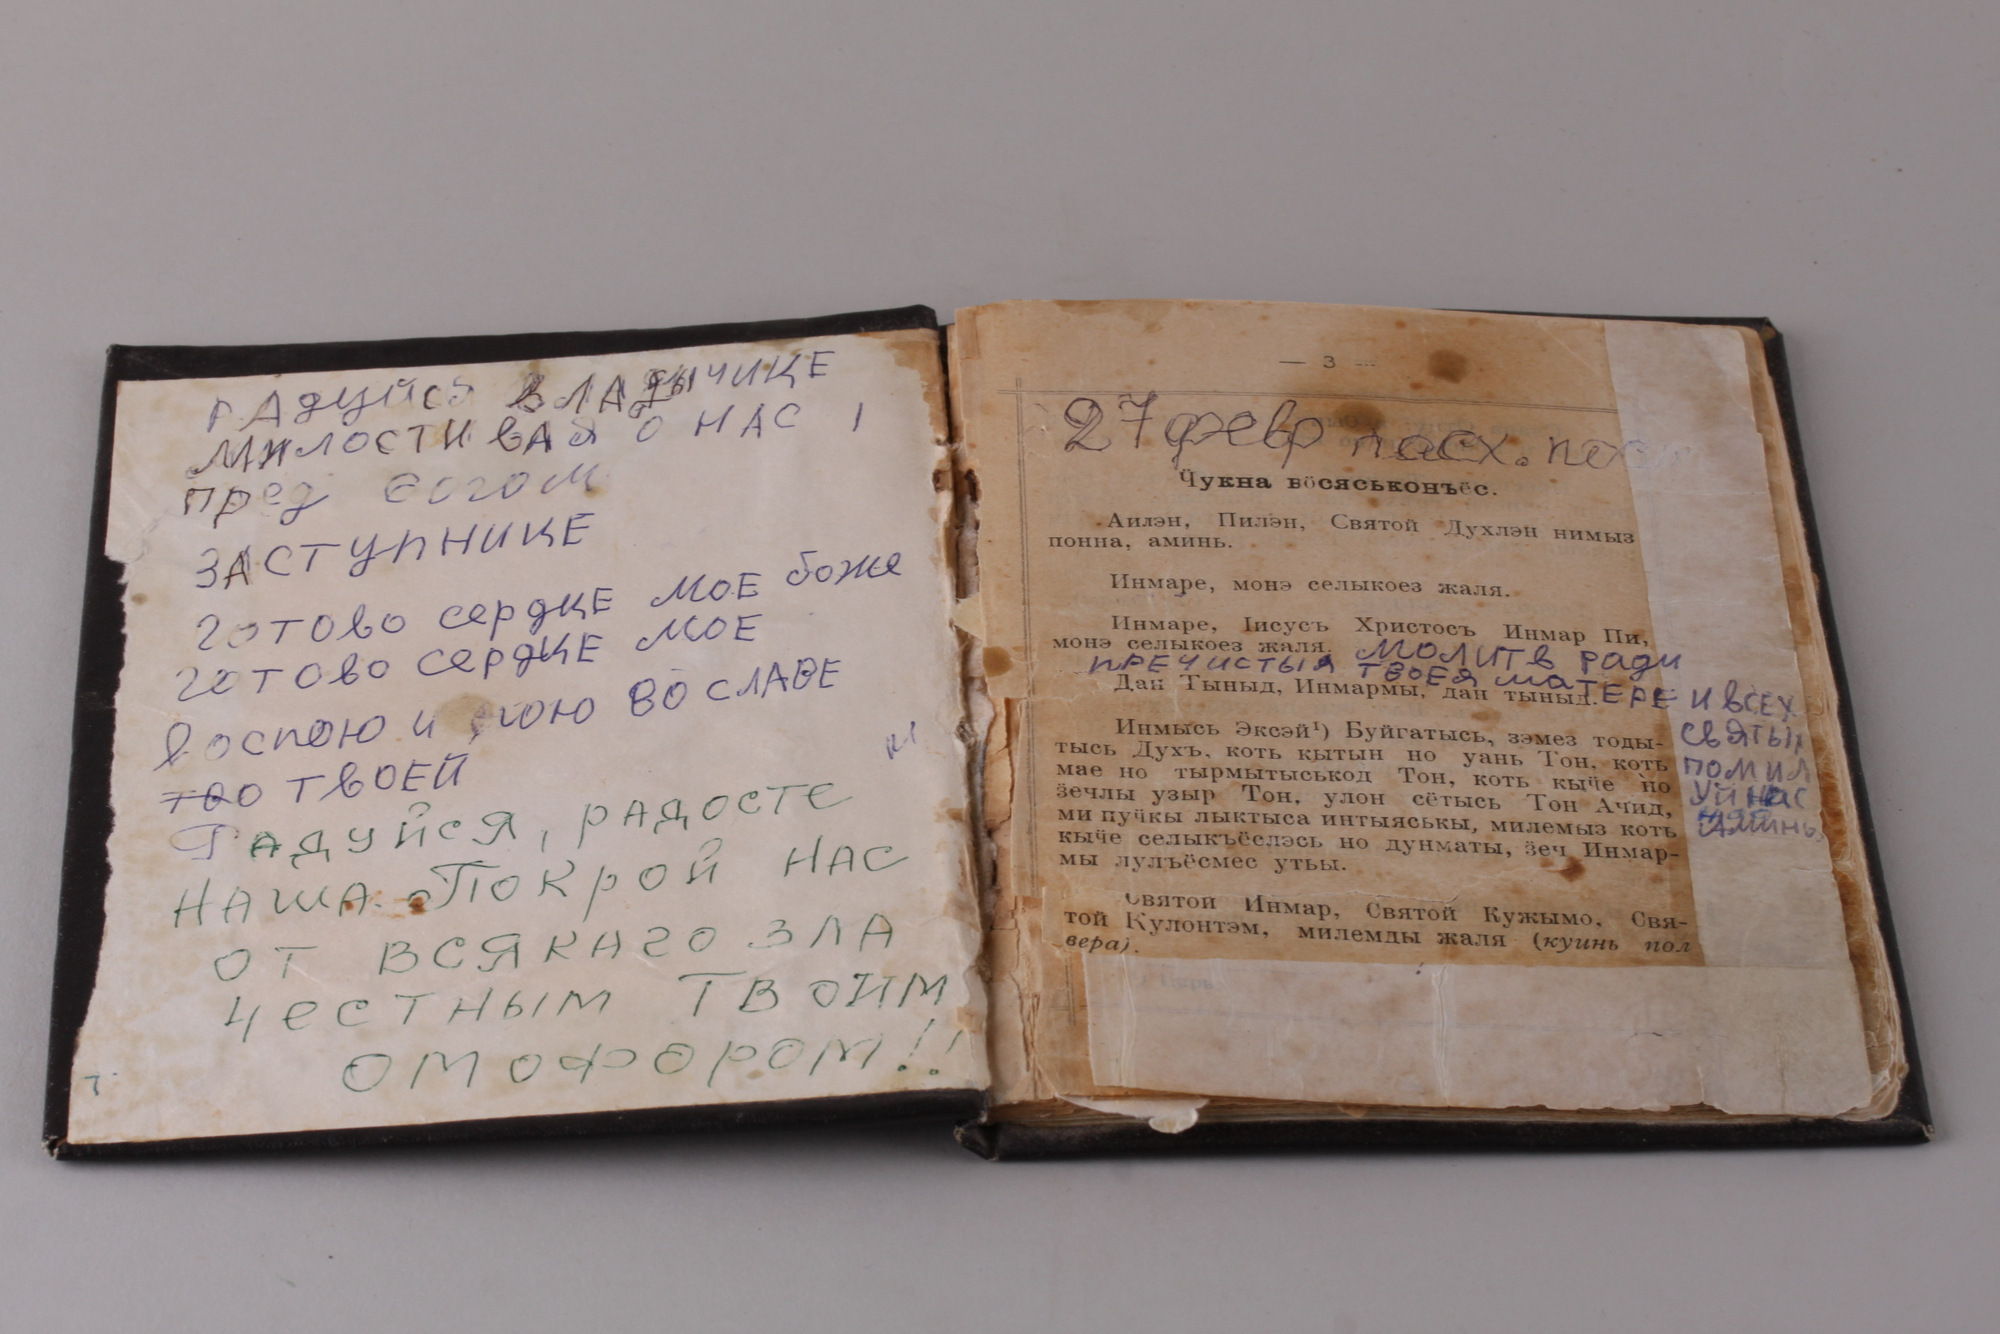 РАДУЙСЯ ВЛАДЫЧИЦЕ
МИЛОСТИВАЯ О НАС
ПРЕД БОГОМ
ЗАСТУПНИЦЕ
ГОТОВО СЕРДЦЕ МОЕ БОЖЕ
ГОТОВО СЕРДЦЕ МОЕ
ВОСПОЮ И ПОЮ ВО СЛАВЕ
ТВОЕЙ
РАДУЙСЯ, РАДОСТЕ
НАША. ПОКРОЙ НАС
ОТ ВСЯКАГО ЗЛА
ЧЕСТНЫМ ТВОИМ
ОМОФОРОМ!!
— 3 —
27 февр пасх. пост
Ӵукна вӧсяськонъёс.
Аилэн, Пилэн, Святой Духлэн нимыз
понна, аминь.
Инмаре, монэ селыкоез жаля.
Инмаре, Іисусъ Христосъ Инмар Пи,
монэ селыкоез жаля. МОЛИТВ РАДИ
ПРЕЧИСТЫЯ ТВОЕЯ МАТЕРЕ И ВСЕХ
СВЯТЫХ
ПОМИЛ
УЙ НАС
АМИНЬ.
Дан Тыныд, Инмармы, дан тыныд.
Инмысь Эксэй¹) Буйгатысь, зэмез тоды-
тысь Духъ, коть кытын но уань Тон, коть
мае но тырмытыськод Тон, коть кыӵе но
ӟечлы узыр Тон, улон сётысь Тон Ачид,
ми пуӵкы лыктыса интыяськы, милемыз коть
кыӵе селыкъёслэсь но дунматы, ӟеч Инмар-
мы лулъёсмес утьы.
Святой Инмар, Святой Кужымо, Свя-
той Кулонтэм, милемды жаля (куинь пол
вера).